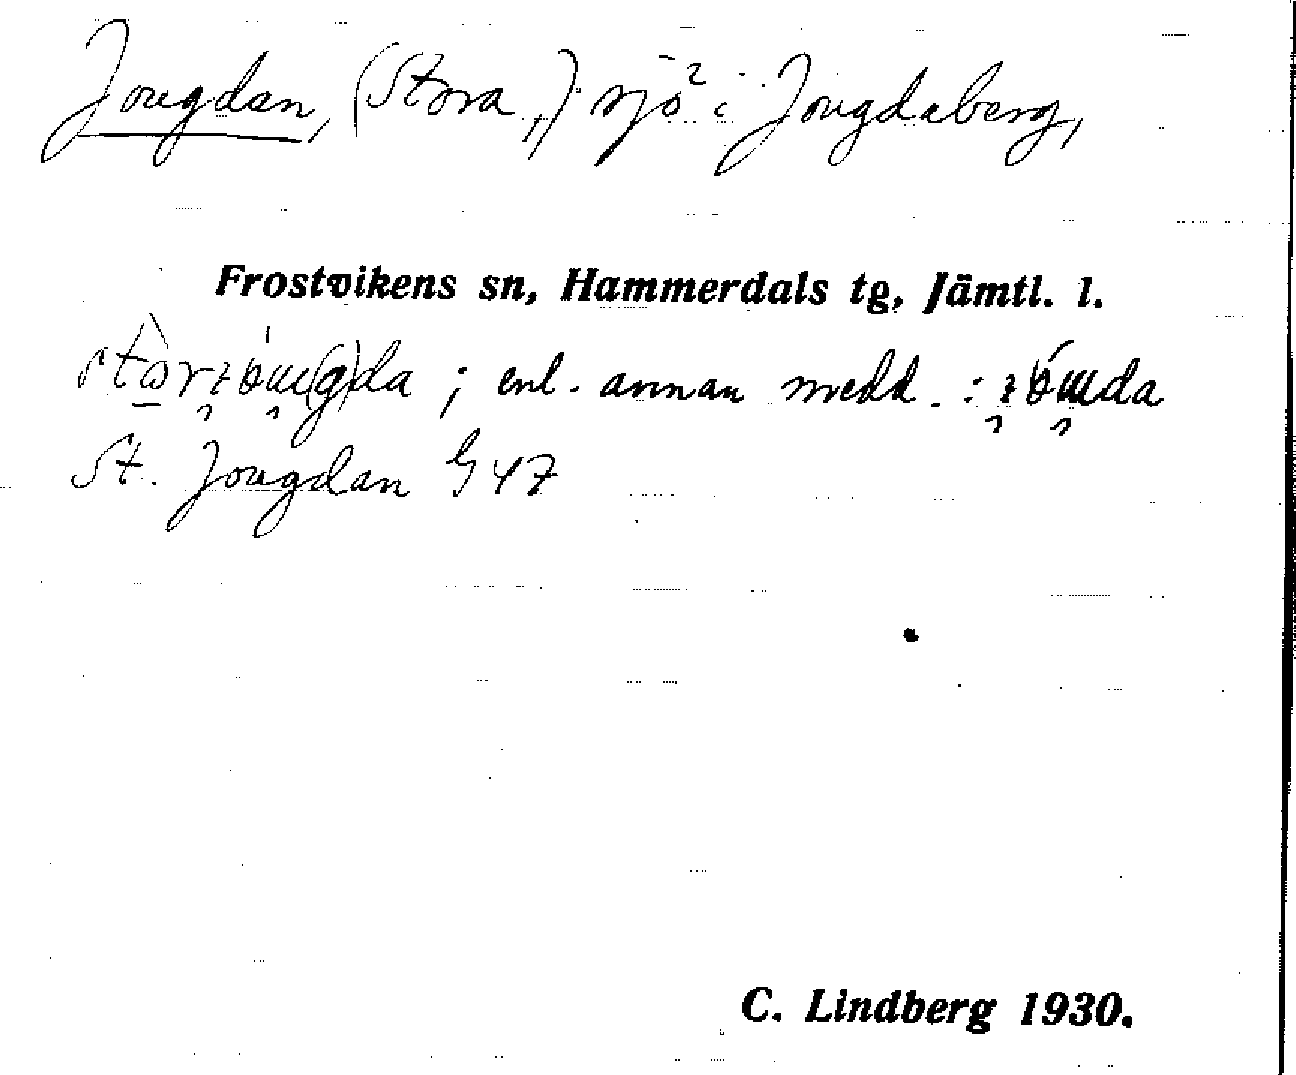 Jougdan, (Stora „) sjö² i Jougdaberg,
Frostvikens sn, Hammerdals tg, Jämtl. l.
; enl. annan medd. :
St. Jougdan G 47
C. Lindberg 1930.